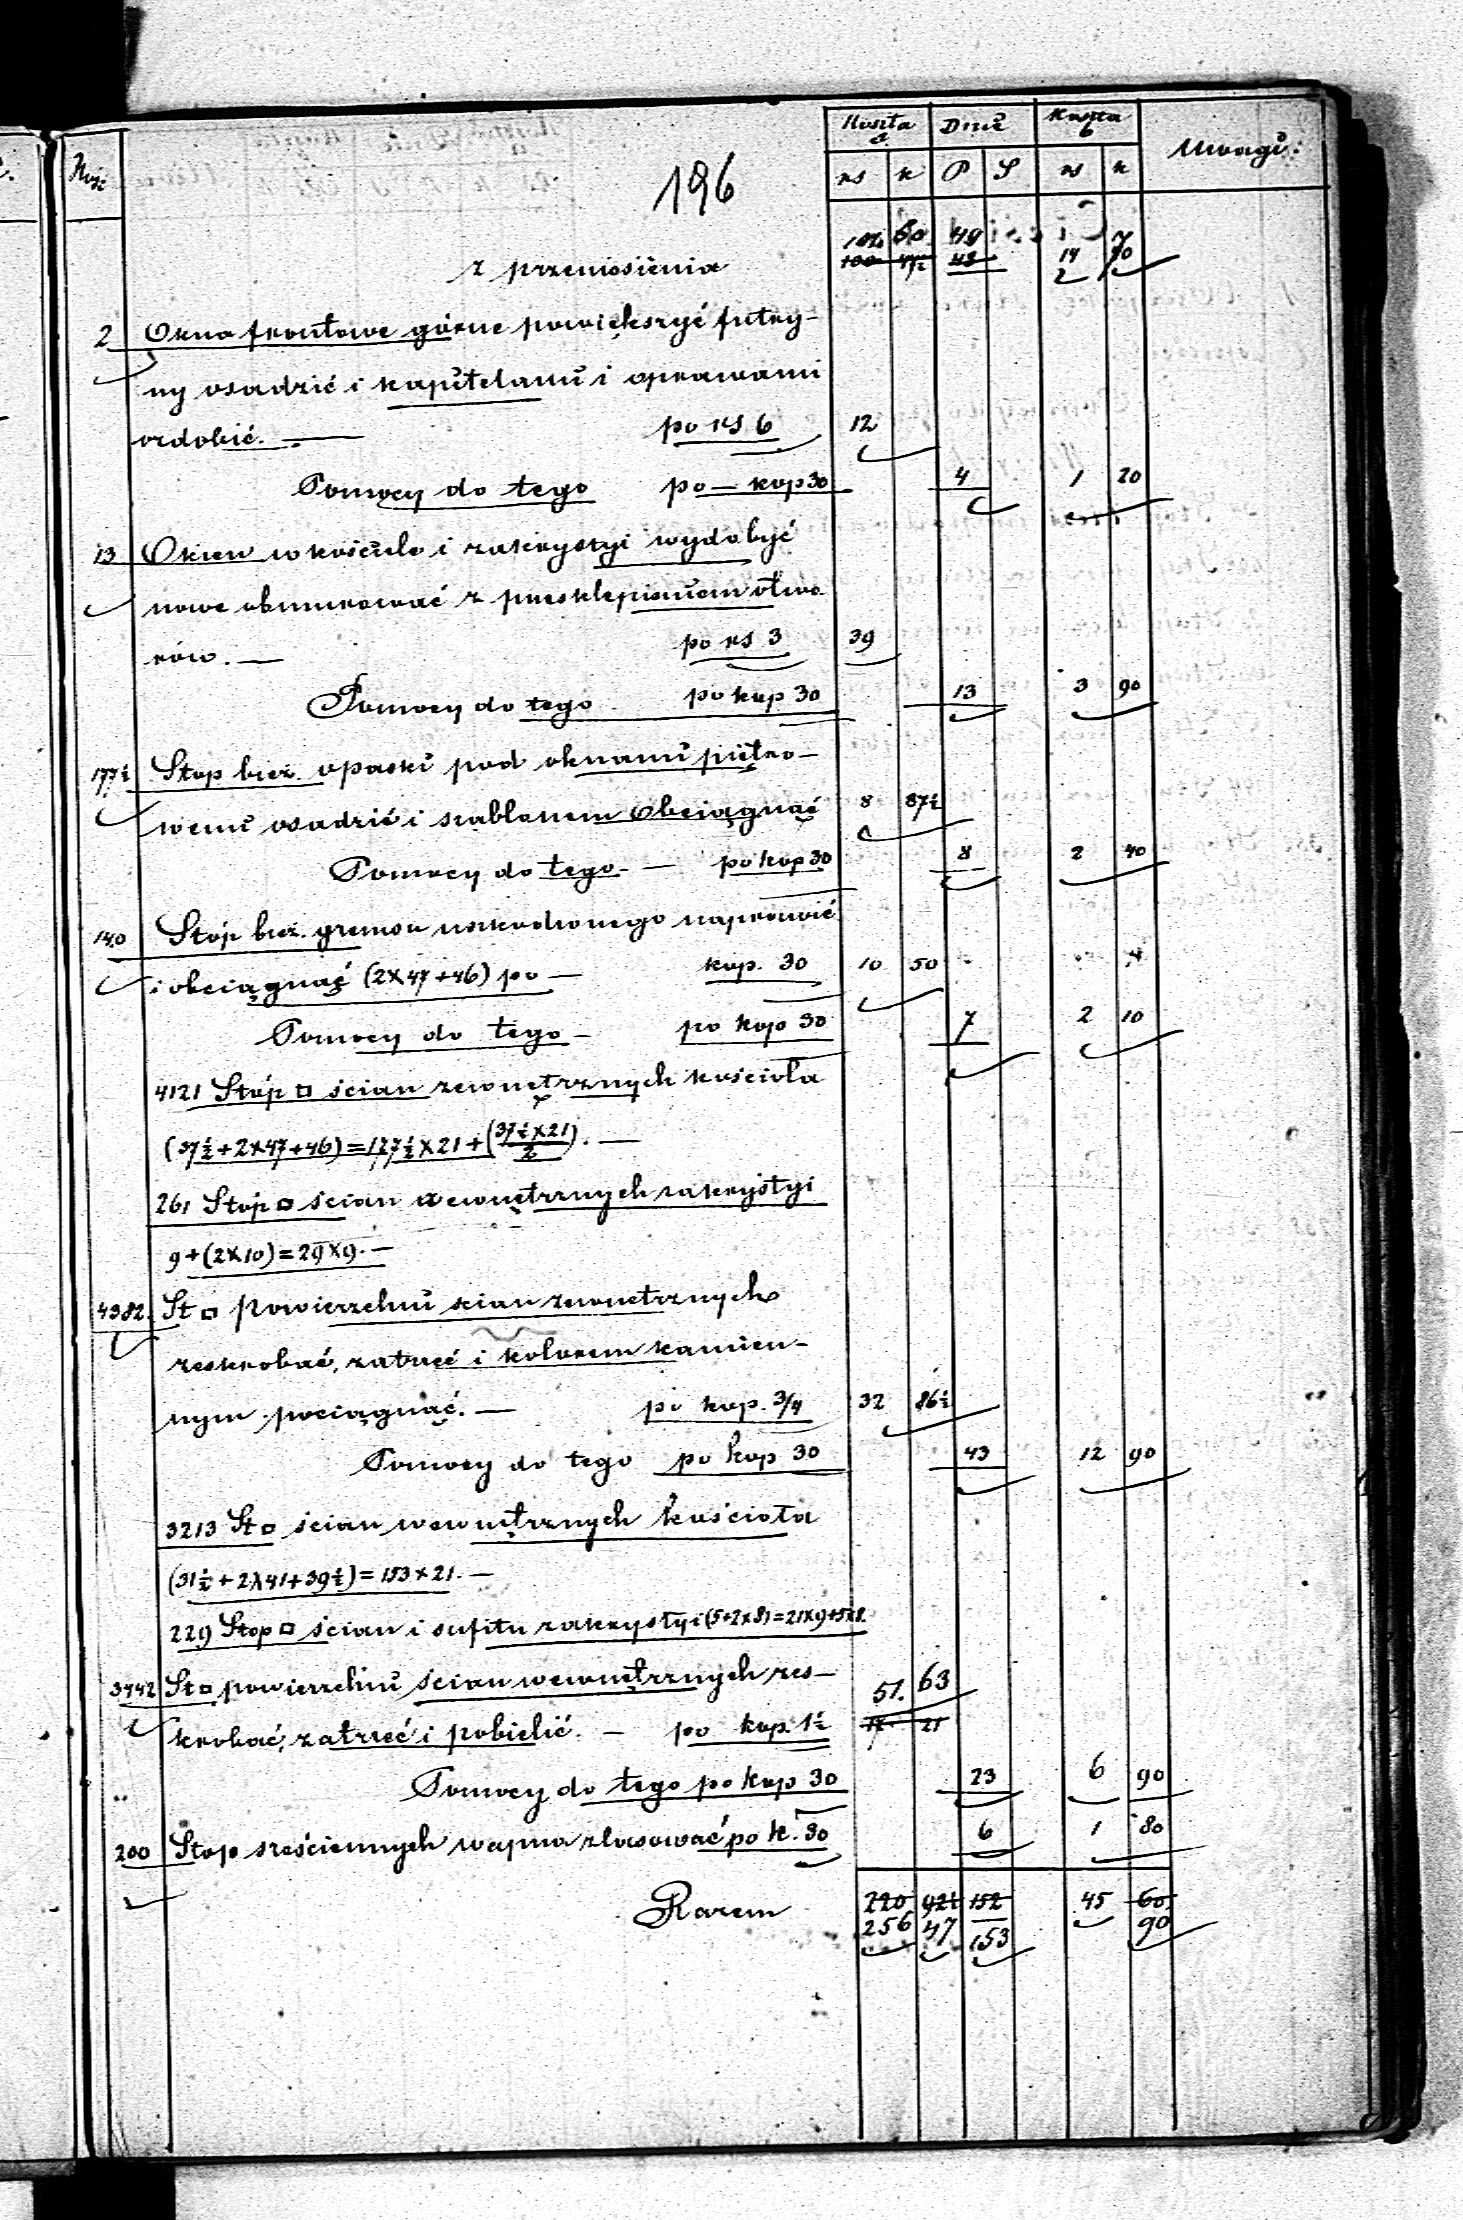 Ilość Koszta a. Dnie Koszta b Uwagi:
rs k P S rs k
196
102 60 49 14 70
z przeniesienia 100 47½ 48 2
2 Okna frontowe górne powiększyć futry-
ny osadzić i kapitelami i oprawami
ozdobić. — po rs 6 12
Pomocy do tego po — kop 30 4 1 20
13 Okien w kościele i zakrystyi wydobyć
nowe obmurować z przesklepieniem otwo
rów. — po rs 3 39
Pomocy do tego po kop 30 13 3 90
177½ Stop bież. opaski pod oknami piętro-
wemi osadzić i szablonem obciągnąć 8 87½
Pomocy do tego — po kop 30 8 2 40
140 Stóp bież. gzemsu uszkodzonego naprawić
i obciągnąć (2x47+46) po — kop. 30 10 50
Pomocy do tego — po kop 30 7 2 10
4121 Stóp □ ścian zewnętrznych kościoła
(37½+2x47+46)=177½x21+(37½x21/2). —
261 Stóp □ ścian zewnętrznych zakrystyi
9+(2x10)=29x9. —
4382. St □ powierzchni ścian zewnetrznych
zeskrobać, zatrzeć i kolorem kamien-
nym pociągnąć. — po kop. 3/4 32 86½
Pomocy do tego po kop 30 43 12 90
3213 St □ ścian wewnętrznych kościoła
(31½+2x41+39½)=153x21. —
229 Stop □ ścian i sufitu zakrystyi (5+2x8)=21x9+5x8.
3442 St □ powierzchni ścian wewnętrznych zes-
51. 63
krobać, zatrzeć i pobielić. — po kop. 1½ 17 21
Pomocy do tego po kop 30 23 6 90
200 Stop sześciennych wapna zlasować po k. 30 6 1 80
Razem 220 92½ 152 45 60
256 47 153 90